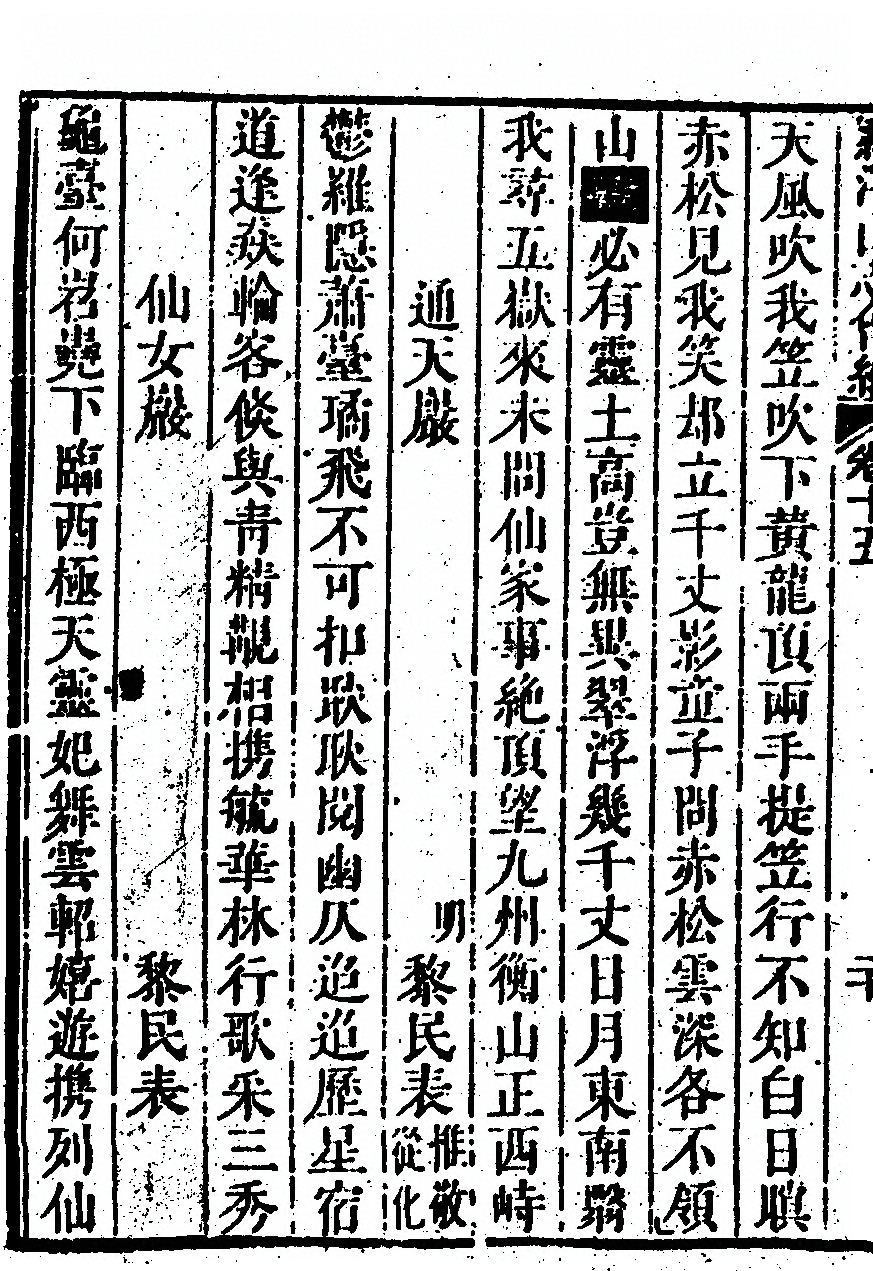 天風吹我笠吹下黃龍頂兩手提笠行不知白日瞋
赤松見我笑却立千丈影童子問赤松雲深各不領
山必有靈土高豈無異翠浮幾千丈日月東南翳
我尋五嶽來未問仙家事絶頂望九州衡山正西峙
通天巖 明 黎民表 惟敬從化
鬱羅隠蕭臺璚飛不可扣耿耿閟幽仄迢迢歷星宿
道逢焱輪客倐與靑精觀招携毓華林行歌采三秀
仙女巖 黎民表
龜臺何岧嶤下臨西極天靈妃舞雲軺嬉遊携列仙
卷十五